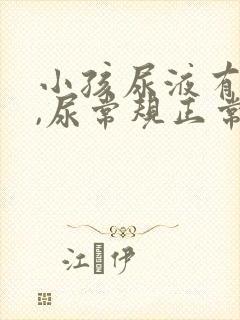 小孩尿液有
,尿常规正常
江 伊